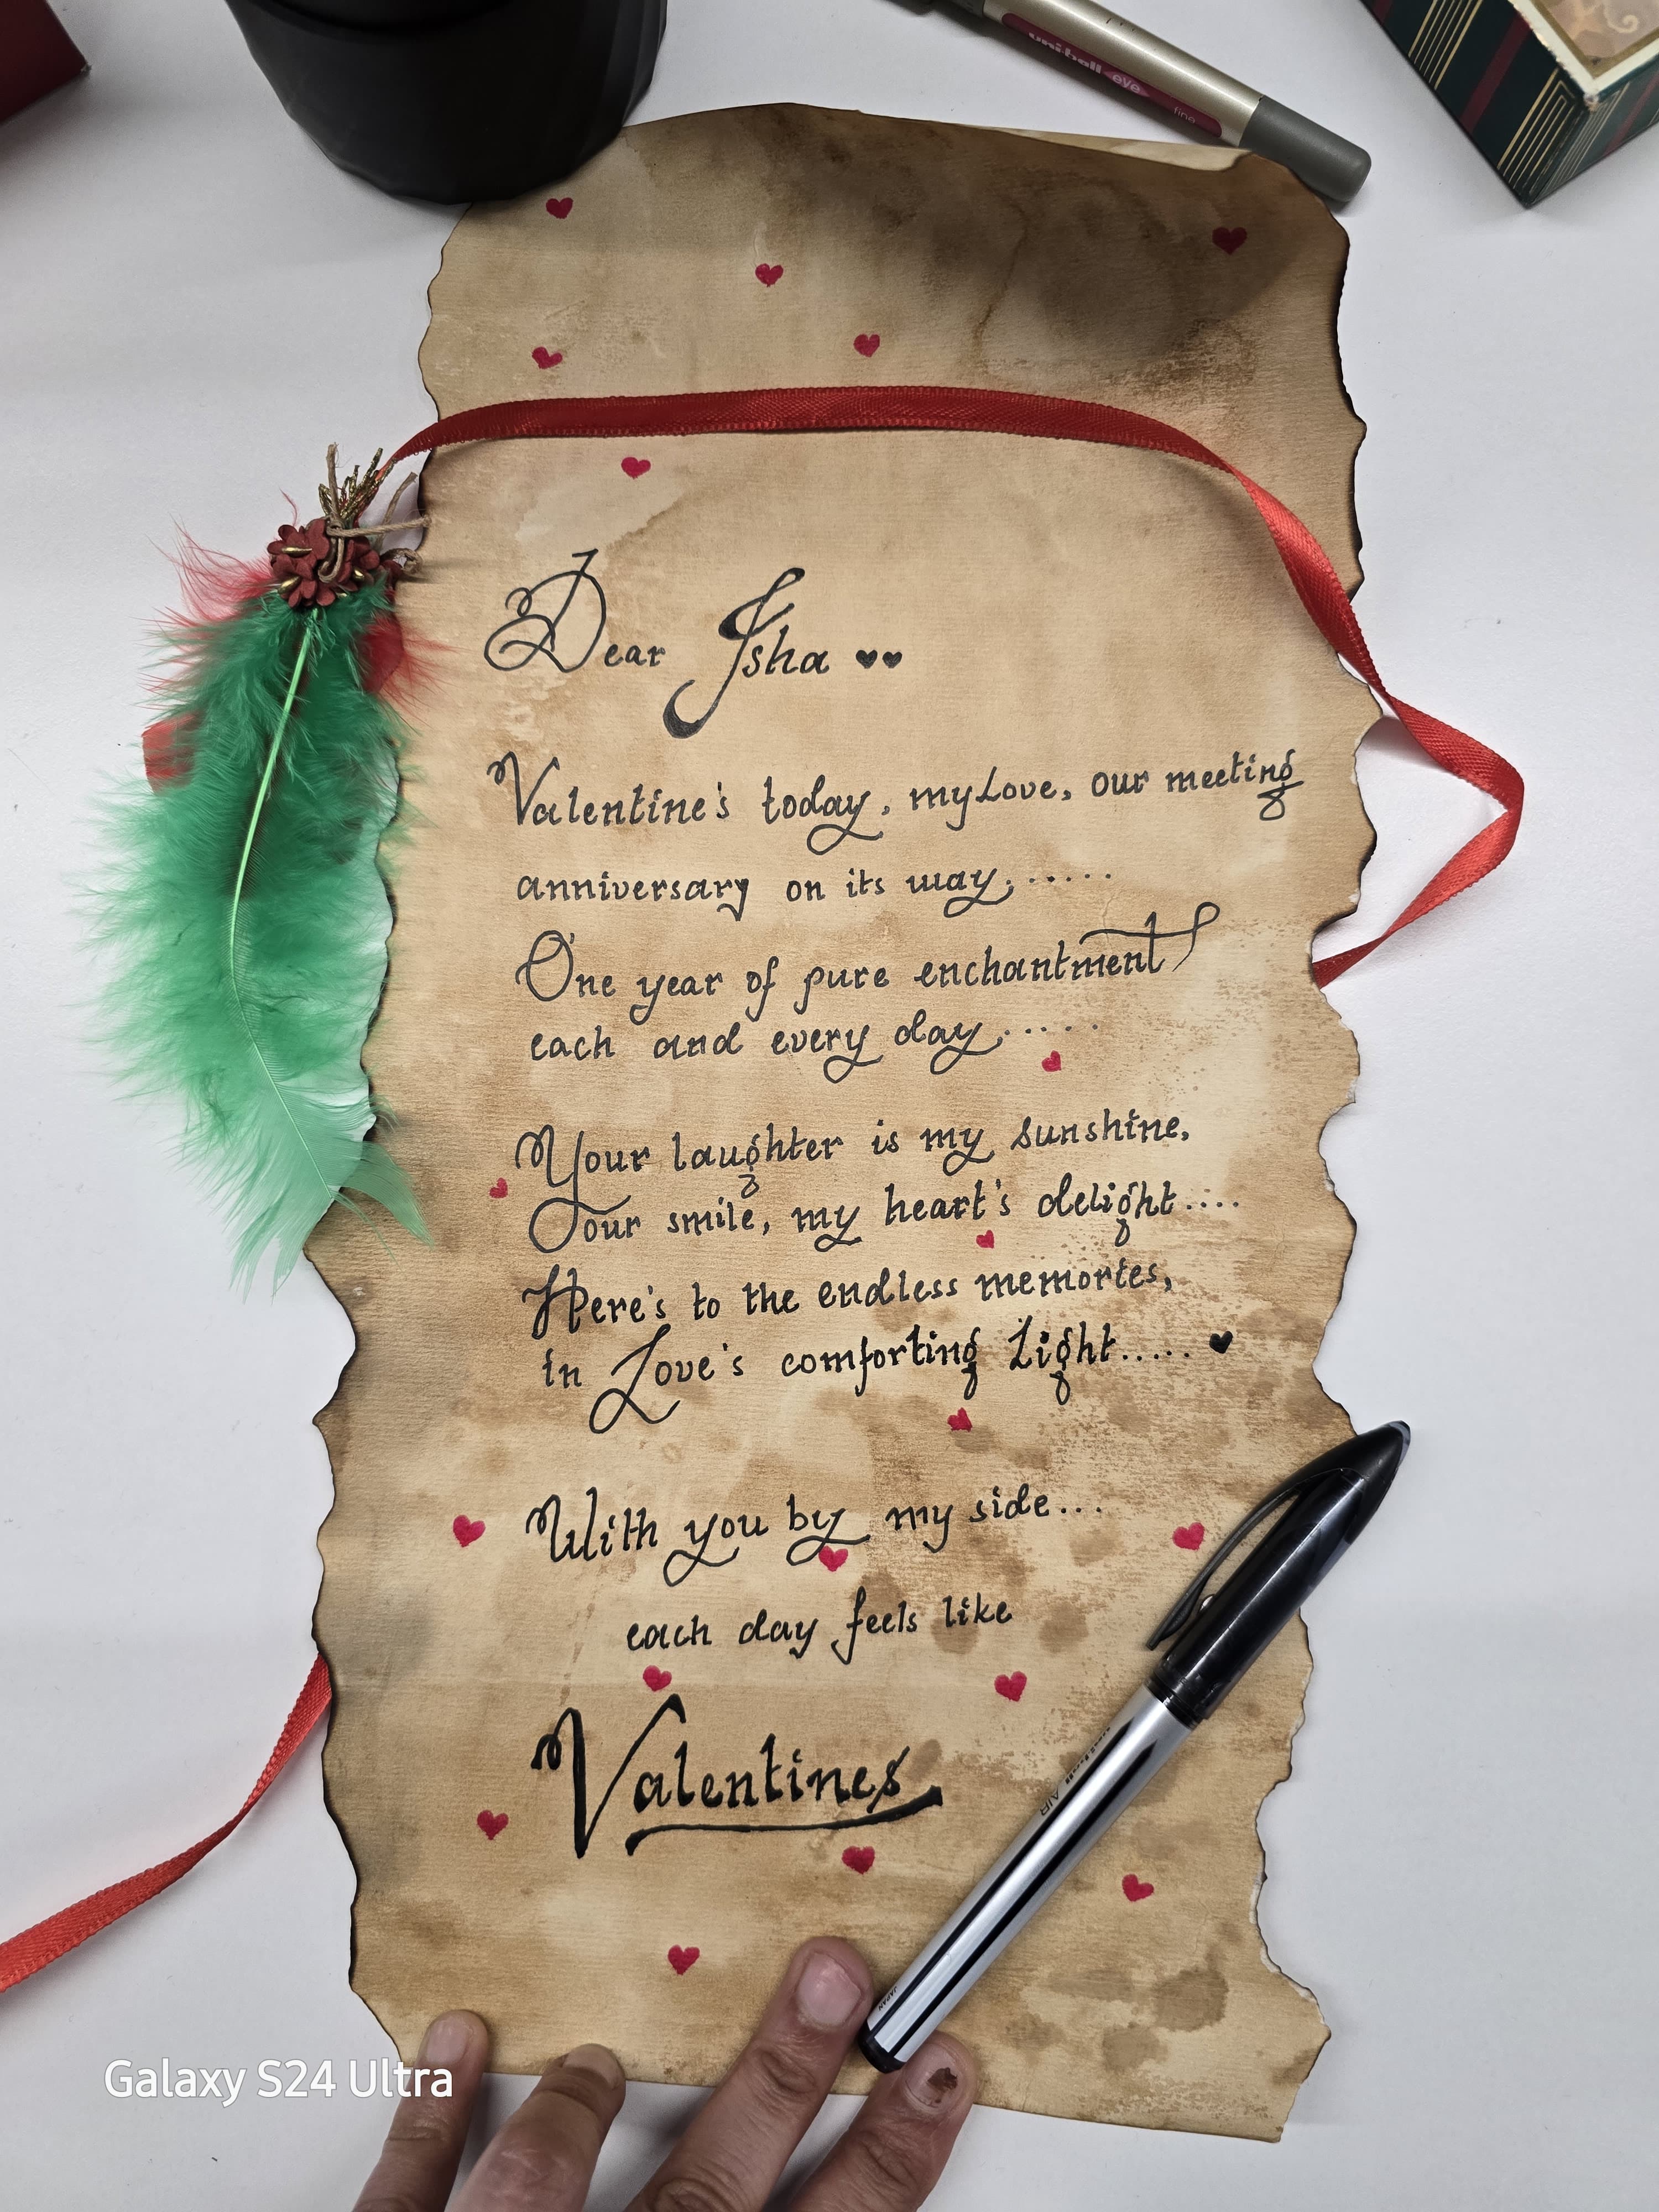 uni-ball eye
fine
Dear Isha ♥♥
Valentine's today, my Love, our meeting
anniversary on its way,.....
One year of pure enchantment
each and every day.....
Your laughter is my sunshine,
Your smile, my heart's delight....
Here's to the endless memories,
in Love's comforting Light..... ♥
With you by my side...
each day feels like
Valentines
AIR
JAPAN
Galaxy S24 Ultra